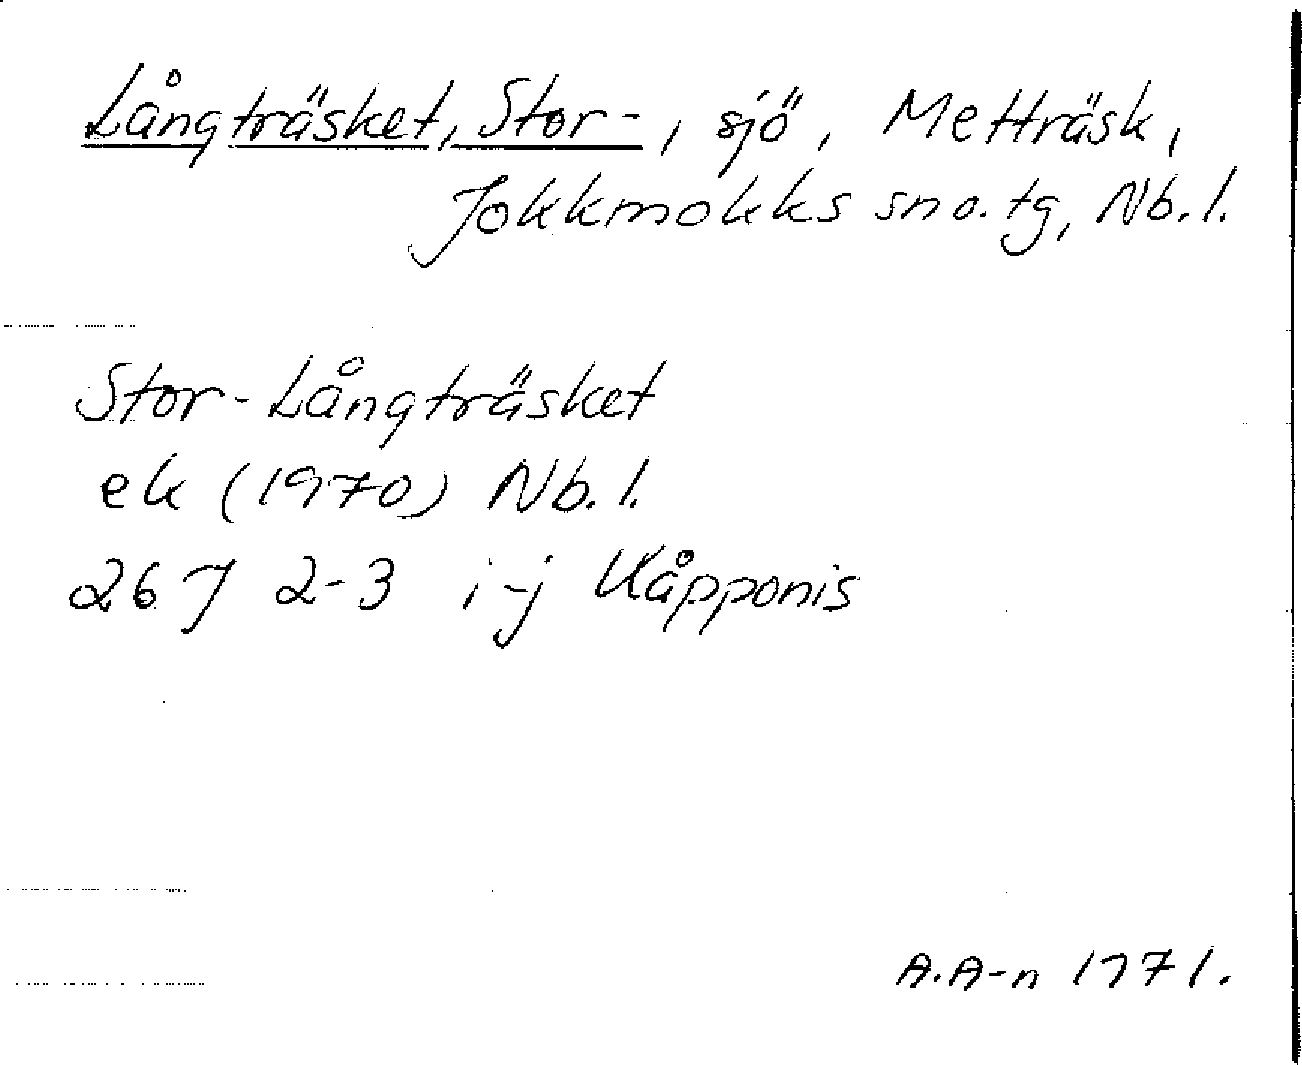 Långträsket, Stor-, sjö, Metträsk,
Jokkmokks sn o. tg, Nb. l.
Stor-Långträsket
ek (1970) Nb. l.
26 J 2-3 i-j Kåpponis
A.A-n 1971.